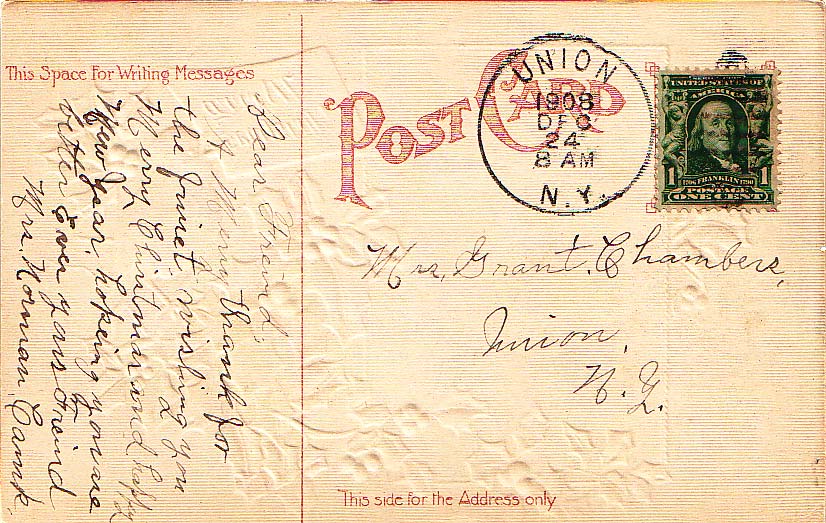 This Space For Writing Messages
Dear Freind,
A Merry thank for
the wishing you
a
Merry Christmas and happy
New Year, hopeing you are
better Ever yours Freind
Mrs. Norman Camp.
POST CARD
UNION
1908
DEC
24
8 AM
N.Y.
UNITED STATES OF
AMERICA
1 1
1706 FRANKLIN 1790
POSTAGE
ONE CENT
Mrs, Grant, Chambers,
Union,
N. Y.
This side for the Address only